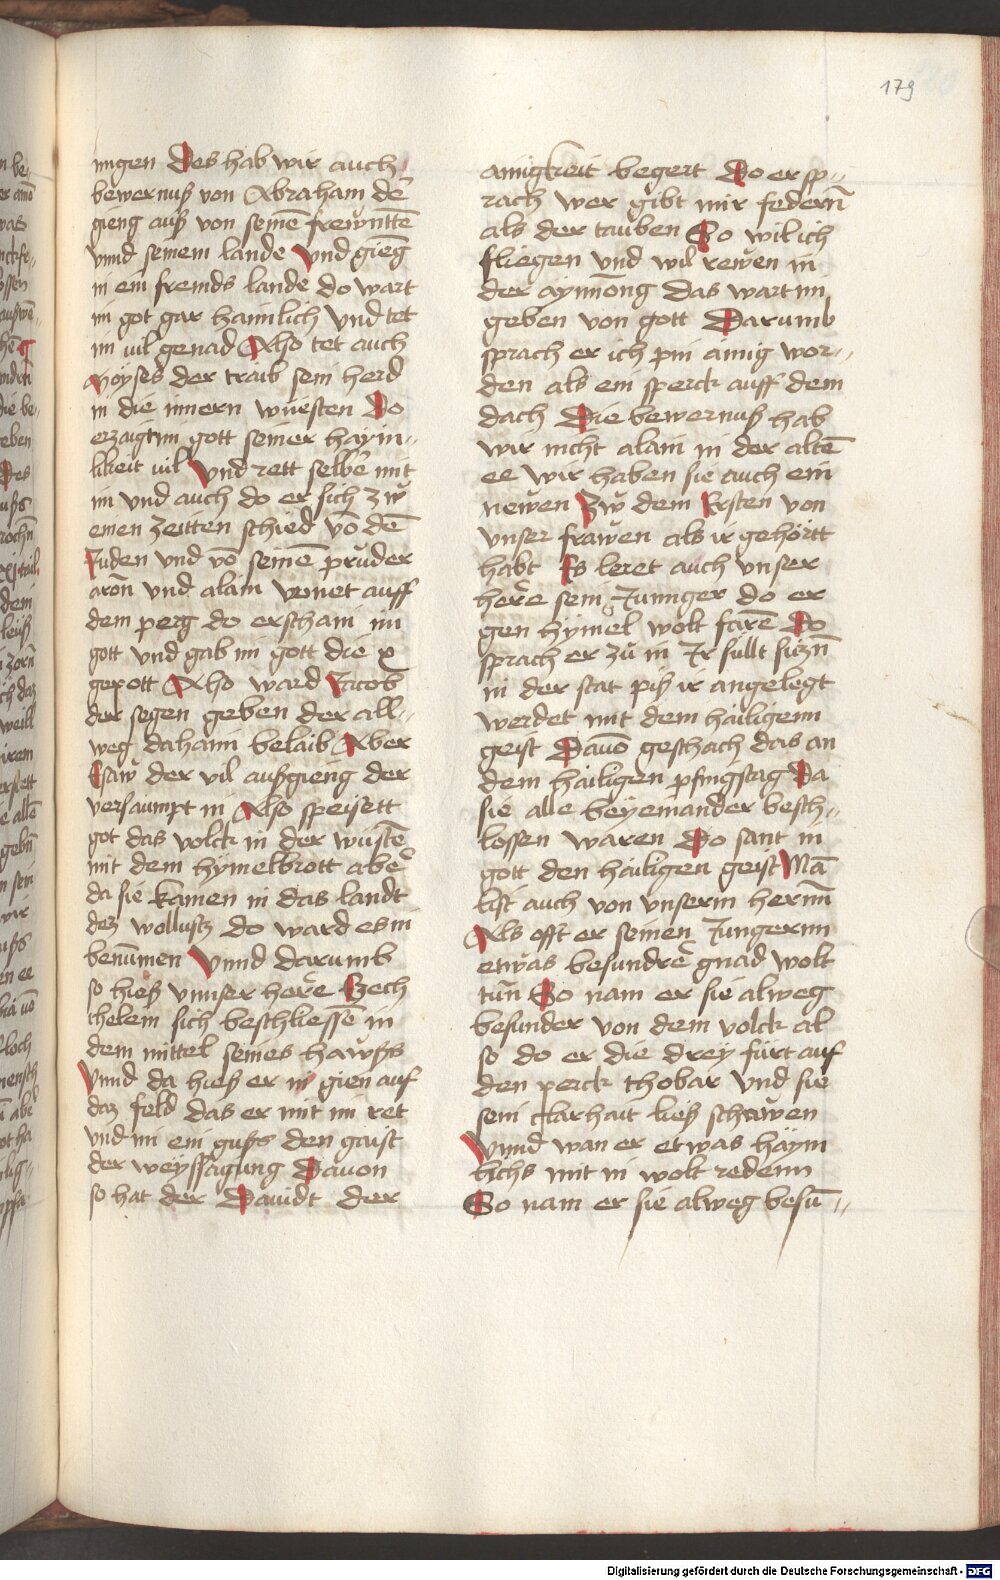 179
nigen Des hab wir auch
bewernuß von Abraham dē
gieng auß von seinē frewnttē
vnnd seinem lande vnd gieng
in ein fremds lande do wart
im got gar haimlich vnd tet
im vil genad Also tet auch
Moyses der traib sein herd
in die innern wuesten Do
erzaigt im gott seiner haym¬
likeit vil Vnd rett selbē mit
im vnd auch do er sich zw
einen zeitten schied vō dē
Juden vnd vō seinē pruder
aron̄ vnd alain wonet auff
dem perg do erschain im
gott vnd gab im gott die x
gepott Also ward Jacob
der segen geben der all¬
weg dahaim belaib Aber
Esaw der vil außgieng der
versaumpt in Also speisett
got das volck in der wustē
mit dem hymelbrott aber
da sie kamen in das landt
dez wollustz do ward es in
benūmen Vnnd darumb
so hieß vnnser herre Ezech
chelem sich beschliessē in
dem mittel seines hawßs
Vnnd da hieß er in gien auf
daz feld das er mit im ret
vnd im ein gußs den gaist
der weyssagung Dauon
so hat der Dauidt der
ainigkeit begert Do er sp¬
rach wer gibt mir federn̄
als der tauben So wil ich
fliegen vnd wil rewen in
der aynnōng das wart im
geben von gott Darumb
sprach er ich pin ainig wor¬
den als ein sperck auff dem
dach Die bewernuß hab
wir nicht alain in der altē
ee wir haben sie auch ein
newen Zw dem Ersten von
vnser frawen als ir gehörtt
habt Es leret auch vnser
herre sein Junnger do er
gen hymel wolt farē Do
sprach er zu in Ir sullt siczn̄
in der stat piß ir angelegt
werdet mit dem hailigenn
geist Dauō geschach das an
dem hailigen pfingstag Da
sie alle beyeinander besch¬
lossen waren Do sant in
gott den hailigen geist Mā
list auch von vnserm hernn̄
Als offt er seinen Jungernn
etwas besundrē gnad wolt
tūn So nam er sie alweg
besunder von dem volck al
so do er die drey fürt auf
den perck thobar vnd sie
sein clarhait ließ schawen
Vnnd wan er etwas haym
lichs mit in wolt redenn
So nam er sie alweg besū¬
Digitalisierung gefördert durch die Deutsche Forschungsgemeinschaft - DFG